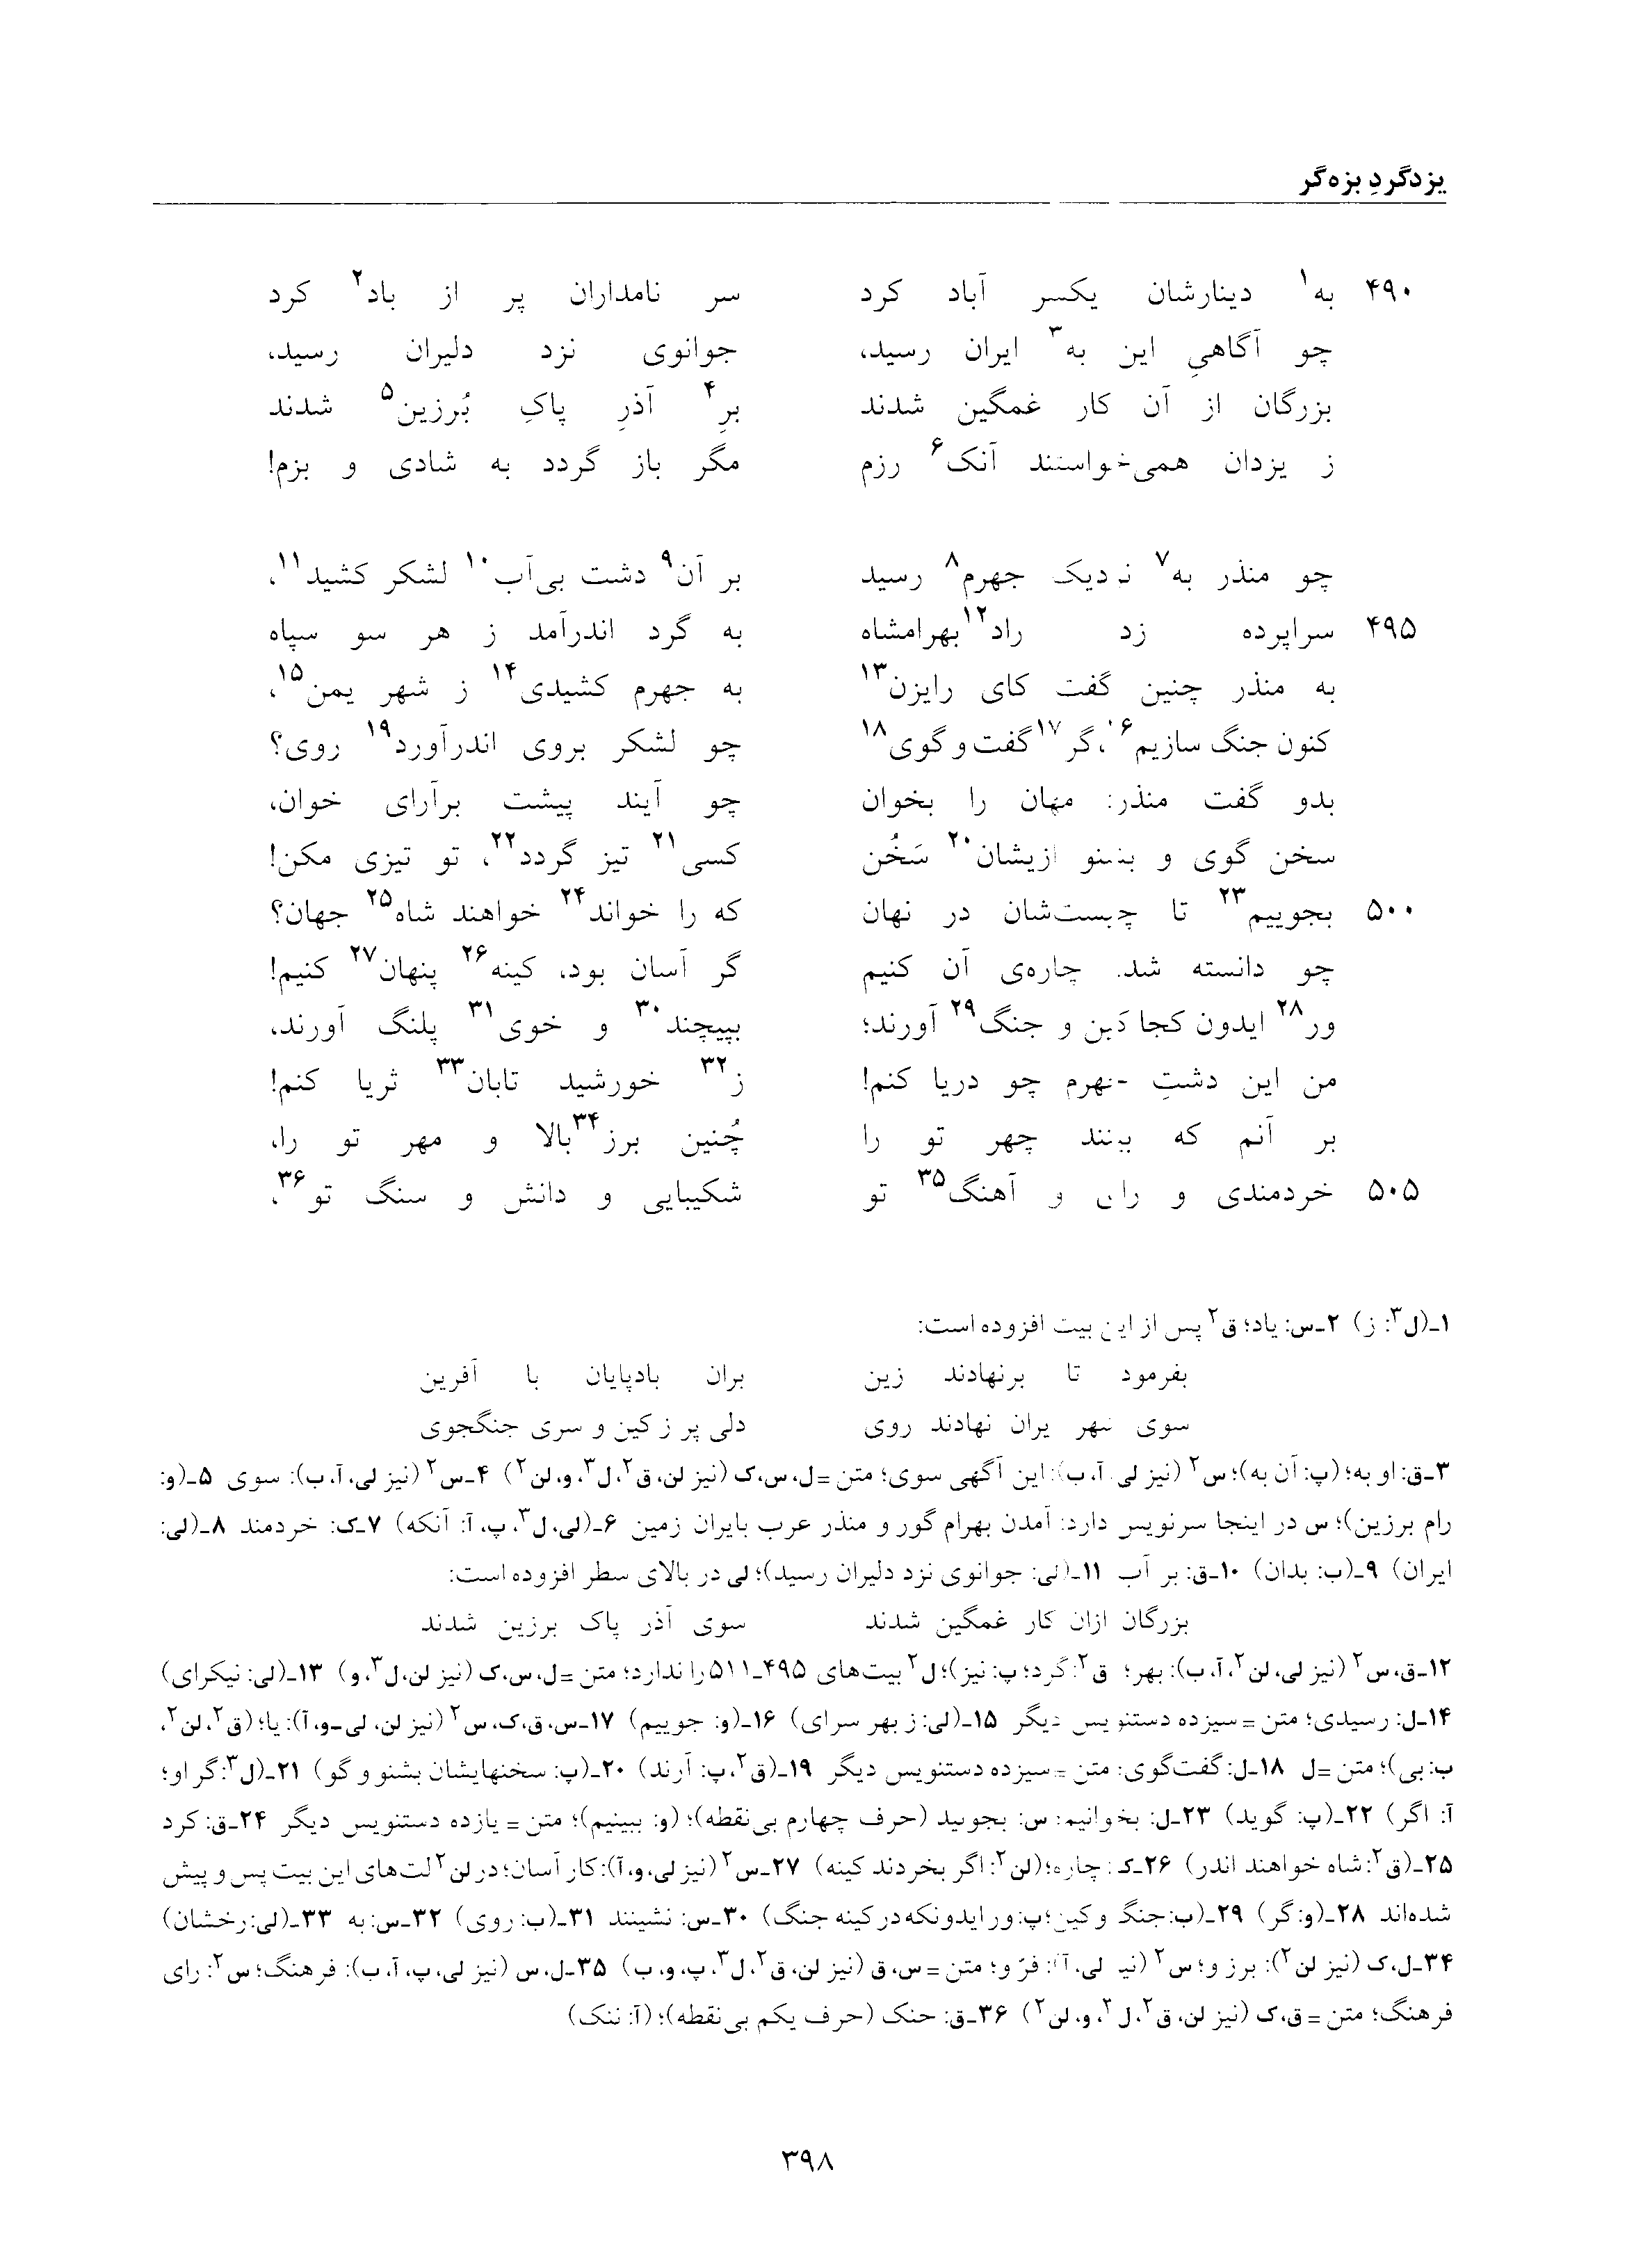 یزدگردِ بزه‌گر
۴۹۰ به۱ دینارشان یکسر آباد کرد سر نامداران پر از باد۲ کرد
چو آگاهیِ این به۳ ایران رسید، جوانوی نزد دلیران رسید،
بزرگان از آن کار غمگین شدند برِ۴ آذرِ پاکِ بُرزین۵ شدند
ز یزدان همی‌خواستند آنک۶ رزم مگر باز گردد به شادی و بزم!
چو منذر به۷ نزدیک جهرم۸ رسید بر آن۹ دشت بی‌آب۱۰ لشکر کشید۱۱،
۴۹۵ سراپرده زد راد۱۲ بهرامشاه به گرد اندرآمد ز هر سو سپاه
به منذر چنین گفت کای رایزن۱۳ به جهرم کشیدی۱۴ ز شهر یمن۱۵،
کنون جنگ سازیم۱۶، گر۱۷ گفت و گوی۱۸ چو لشکر بروی اندرآورد۱۹ روی؟
بدو گفت منذر: مهان را بخوان چو آیند پیشت برآرای خوان،
سخن گوی و بشنو ازیشان۲۰ سَخُن کسی۲۱ تیز گردد۲۲، تو تیزی مکن!
۵۰۰ بجوییم۲۳ تا چیست‌شان در نهان که را خواند۲۴ خواهند شاه۲۵ جهان؟
چو دانسته شد، چاره‌ی آن کنیم گر آسان بود، کینه۲۶ پنهان۲۷ کنیم!
ور۲۸ ایدون کجا کین و جنگ۲۹ آورند؛ بپیچند۳۰ و خوی۳۱ پلنگ آورند،
من این دشتِ جهرم چو دریا کنم! ز۳۲ خورشید تابان۳۳ ثریا کنم!
بر آنم که بینند چهر تو را چُنین برز۳۴ بالا و مهر تو را،
۵۰۵ خردمندی و رای و آهنگ۳۵ تو شکیبایی و دانش و سنگ تو۳۶،
۱ـ(ل۳: ز) ۲ـس: یاد؛ ق۲ پس از این بیت افزوده است:
بفرمود تا برنهادند زین بران بادپایان با آفرین
سوی شهر ایران نهادند روی دلی پر ز کین و سری جنگجوی
۳ـق: او به؛ (پ: آن به)؛ س۲ (نیز لی، آ، ب): این آگهی سوی؛ متن =ل، س، ک (نیز لن، ق۲، ل۳، و، لن۲) ۴ـس۲ (نیز لی، آ، ب): سوی ۵ـ(و:
رام برزین)؛ س در اینجا سرنویس دارد: آمدن بهرام گور و منذر عرب بایران زمین ۶ـ(لی، ل۳، پ، آ: آنکه) ۷ـک: خردمند ۸ـ(لی:
ایران) ۹ـ(ب: بدان) ۱۰ـق: بر آب ۱۱ـ(لی: جوانوی نزد دلیران رسید)؛ لی در بالای سطر افزوده است:
بزرگان ازان کار غمگین شدند سوی آذر پاک برزین شدند
۱۲ـق، س۲ (نیز لی، لن۲، آ، ب): بهر؛ ق۲: گرد؛ پ: نیز)؛ ل۲ بیت‌های ۴۹۵ـ۵۱۱ را ندارد؛ متن =ل، س، ک (نیز لن، ل۳، و) ۱۳ـ(لی: نیکرای)
۱۴ـل: رسیدی؛ متن = سیزده دستنویس دیگر ۱۵ـ(لی: ز بهر سرای) ۱۶ـ(و: جوییم) ۱۷ـس، ق، ک، س۲ (نیز لن، لی-و، آ): یا؛ (ق۲، لن۲،
ب: بی)؛ متن =ل ۱۸ـل: گفت‌گوی؛ متن = سیزده دستنویس دیگر ۱۹ـ(ق۲، پ: آرند) ۲۰ـ(پ: سخنهایشان بشنو و گو) ۲۱ـ(ل۳: گر او؛
آ: اگر) ۲۲ـ(پ: گوید) ۲۳ـل: بخوانیم؛ س: بجویید (حرف چهارم بی‌نقطه)؛ (و: ببینیم)؛ متن = یازده دستنویس دیگر ۲۴ـق: کرد
۲۵ـ(ق۲: شاه خواهند اندر) ۲۶ـک: چاره؛ (لن۲: اگر بخردند کینه) ۲۷ـس۲ (نیز لی، و، آ): کار آسان؛ در لن۲ لت‌های این بیت پس و پیش
شده‌اند ۲۸ـ(و: گر) ۲۹ـ(ب: جنگ و کین؛ پ: ور ایدونکه در کینه جنگ) ۳۰ـس: نشینند ۳۱ـ(ب: روی) ۳۲ـس: به ۳۳ـ(لی: رخشان)
۳۴ـل، ک (نیز لن۲): برز و؛ س۲ (نیز لی، آ): فرّ و؛ متن = س، ق (نیز لن، ق۲، ل۳، پ، و، ب) ۳۵ـل، س (نیز لی، پ، آ، ب): فرهنگ؛ س۲: رای
فرهنگ؛ متن = ق، ک (نیز لن، ق۲، ل۳، و، لن۲) ۳۶ـق: حنک (حرف یکم بی‌نقطه)؛ (آ: ننک)
۳۹۸